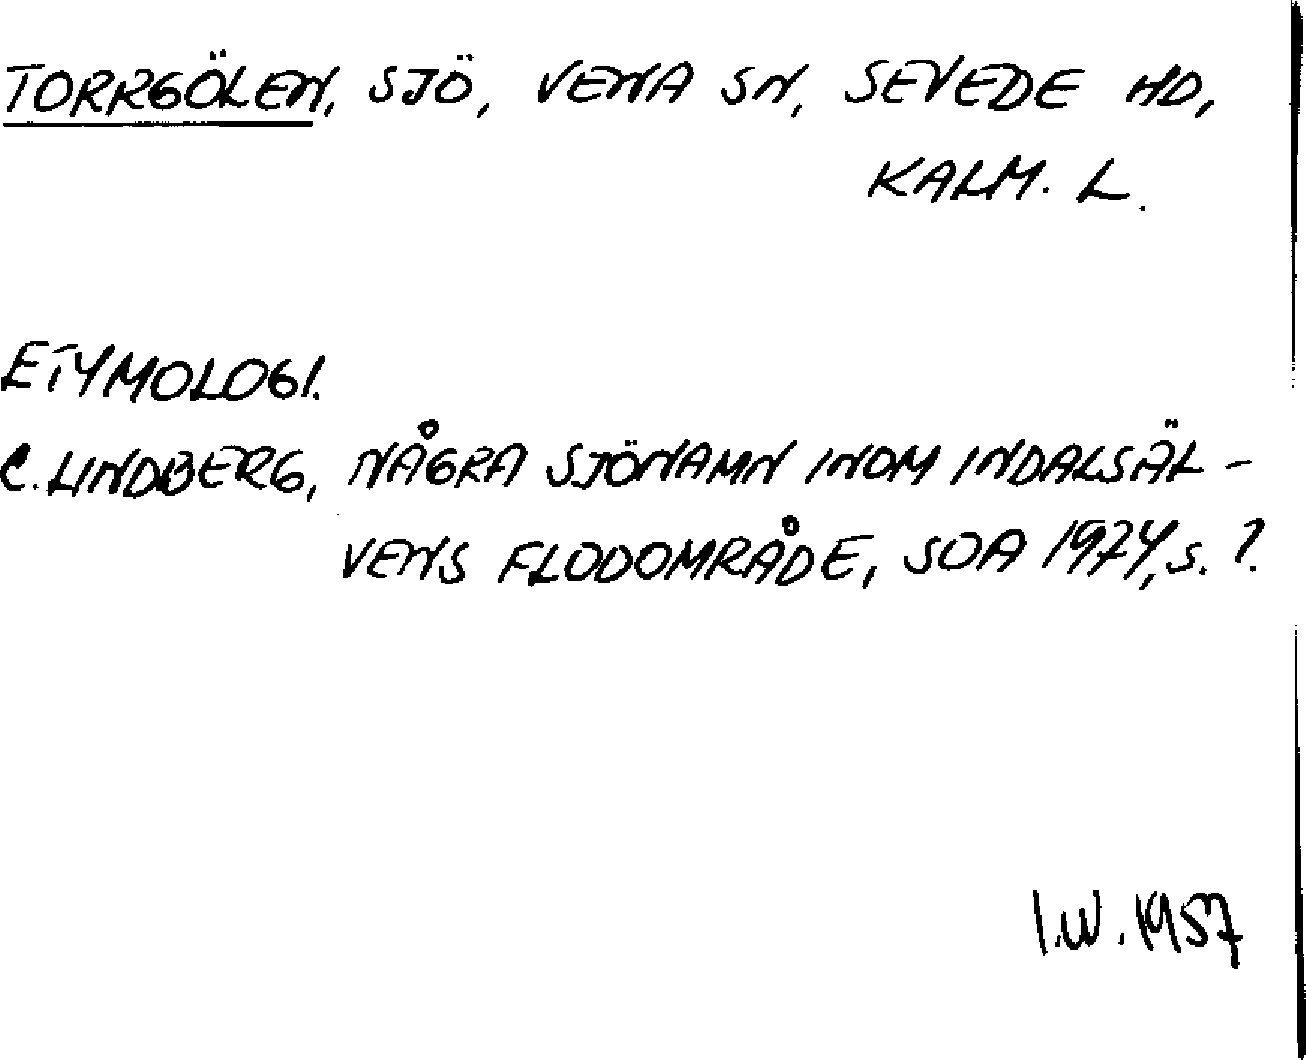 TORRGÖLEN, SJÖ, VENA SN, SEVEDE HD,
KALM. L.
ETYMOLOGI.
C. LINDBERG, NÅGRA SJÖNAMN INOM INDALSÄL-
VENS FLODOMRÅDE, SOÄ 1974, S. 7.
I.W. 1957